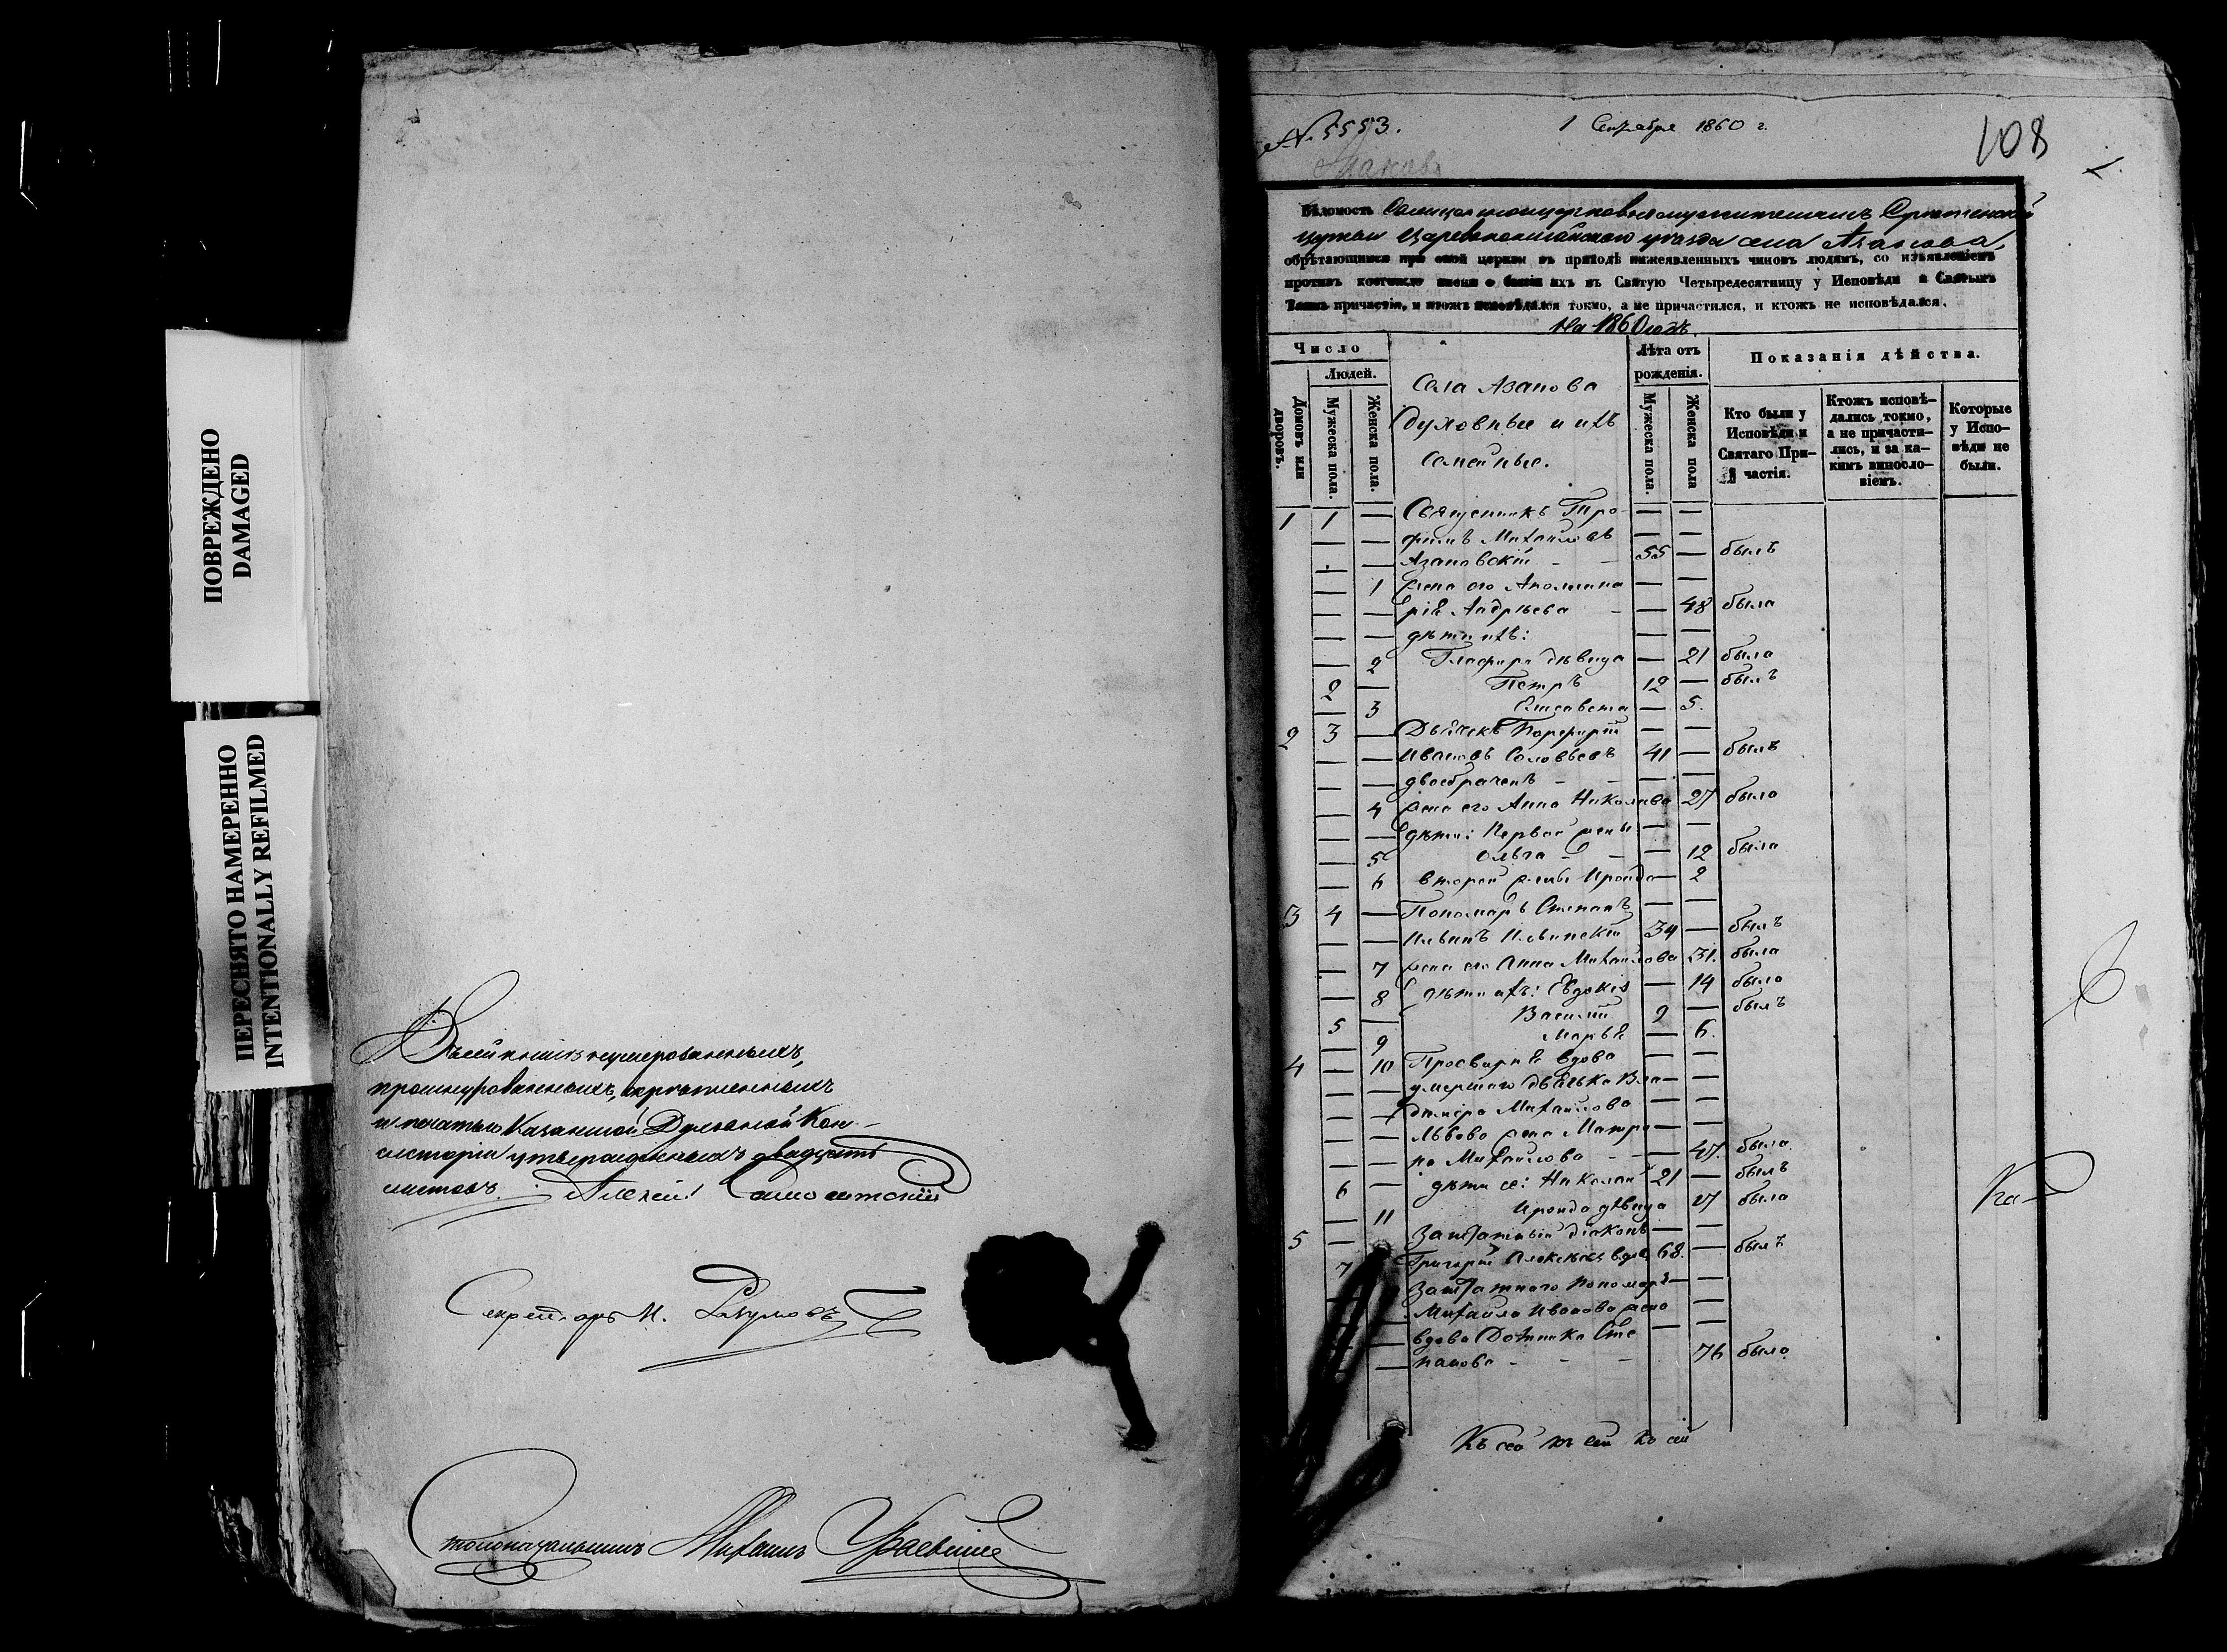 ПОВРЕЖДЕНО
DAMAGED
ПЕРЕСНЯТО НАМЕРЕННО
INTENTIONALLY REFILMED
нумерованныхъ,
прошнурованныхъ, скрѣпленныхъ
и печатью Казанской Духовной Кон-
систоріи утвержденныхъ двадцать
листовъ. Алексѣй
Секретарь И. Разумовъ
Столоначальникъ Михаилъ
№ 5553. 1 Сентября 1860 г.
108
Вѣдомость церкви Царевококшайскаго уѣзда села Азанова,
обрѣтающимся при оной церкви въ приходѣ нижеявленныхъ чиновъ людямъ, со изъявленіемъ
противъ коегождо имени о бытіи ихъ въ Святую Четыредесятницу у Исповѣди и Святыхъ
Таинъ причастія, и ктожъ исповѣдался токмо, а не причастился, и ктожъ не исповѣдался.
На 1860 годъ.
Число
Людей.
Домовъ или дворовъ.
Мужеска пола.
Женска пола.
Села Азанова
духовные и ихъ
семейные.
Лѣта отъ рожденія.
Мужеска пола.
Женска пола
Показанія дѣйства.
Кто были у Исповѣди и Святаго При-частія.
Ктожъ исповѣ-дались токмо, а не причасти-лись, и за ка-кимъ винословіемъ.
Которые у Испо-вѣди не были.
1 1 — Священникъ Тро- — —
— — фимъ Михайловъ — —
— — Азановскій — 55 — былъ
— 1 Жена его Аполлина — —
— — рія Андрѣева — — 48 была
— — дѣти ихъ: — —
— 2 Глафира дѣвица — 21 была
2 — Петръ 12 — былъ
— 3 Елисавета — 5.
2 3 — Дьячекъ Порфирій — —
— — Ивановъ Соловьевъ 41 — былъ
— — двоебраченъ — — —
— 4 жена его Анна Николаева 27 была
— — дѣти: Первой жены — —
— 5 Ольга — — 12 была
— 6 второй жены Ираида — 2
3 4 — Пономарь Степанъ — —
— — Ильинъ Ильинскій 34 — былъ
— 7 жена его Анна Михайлова 31. была
— 8 дѣти ихъ: Евдокія — 14 была
5 — Василій 9 — былъ
— 9 Марья — 6.
4 — 10 Просвирня вдова — —
— — умершаго дьячька Вла — —
— — диміра Михайлова — —
— — Львова жена Матре — —
— — на Михайлова — — 47. была
6 — дѣти ее: Николай 21 — былъ
— 11 Ираида дѣвица 27 была
5 — Заштатный діаконъ — —
7 Григорій Алексѣевъ вдов. 68. — былъ
Заштатнаго пономаря — —
Михайла Иванова жена —
вдова Домника Сте — —
— панова — — — 76 была
Къ сей